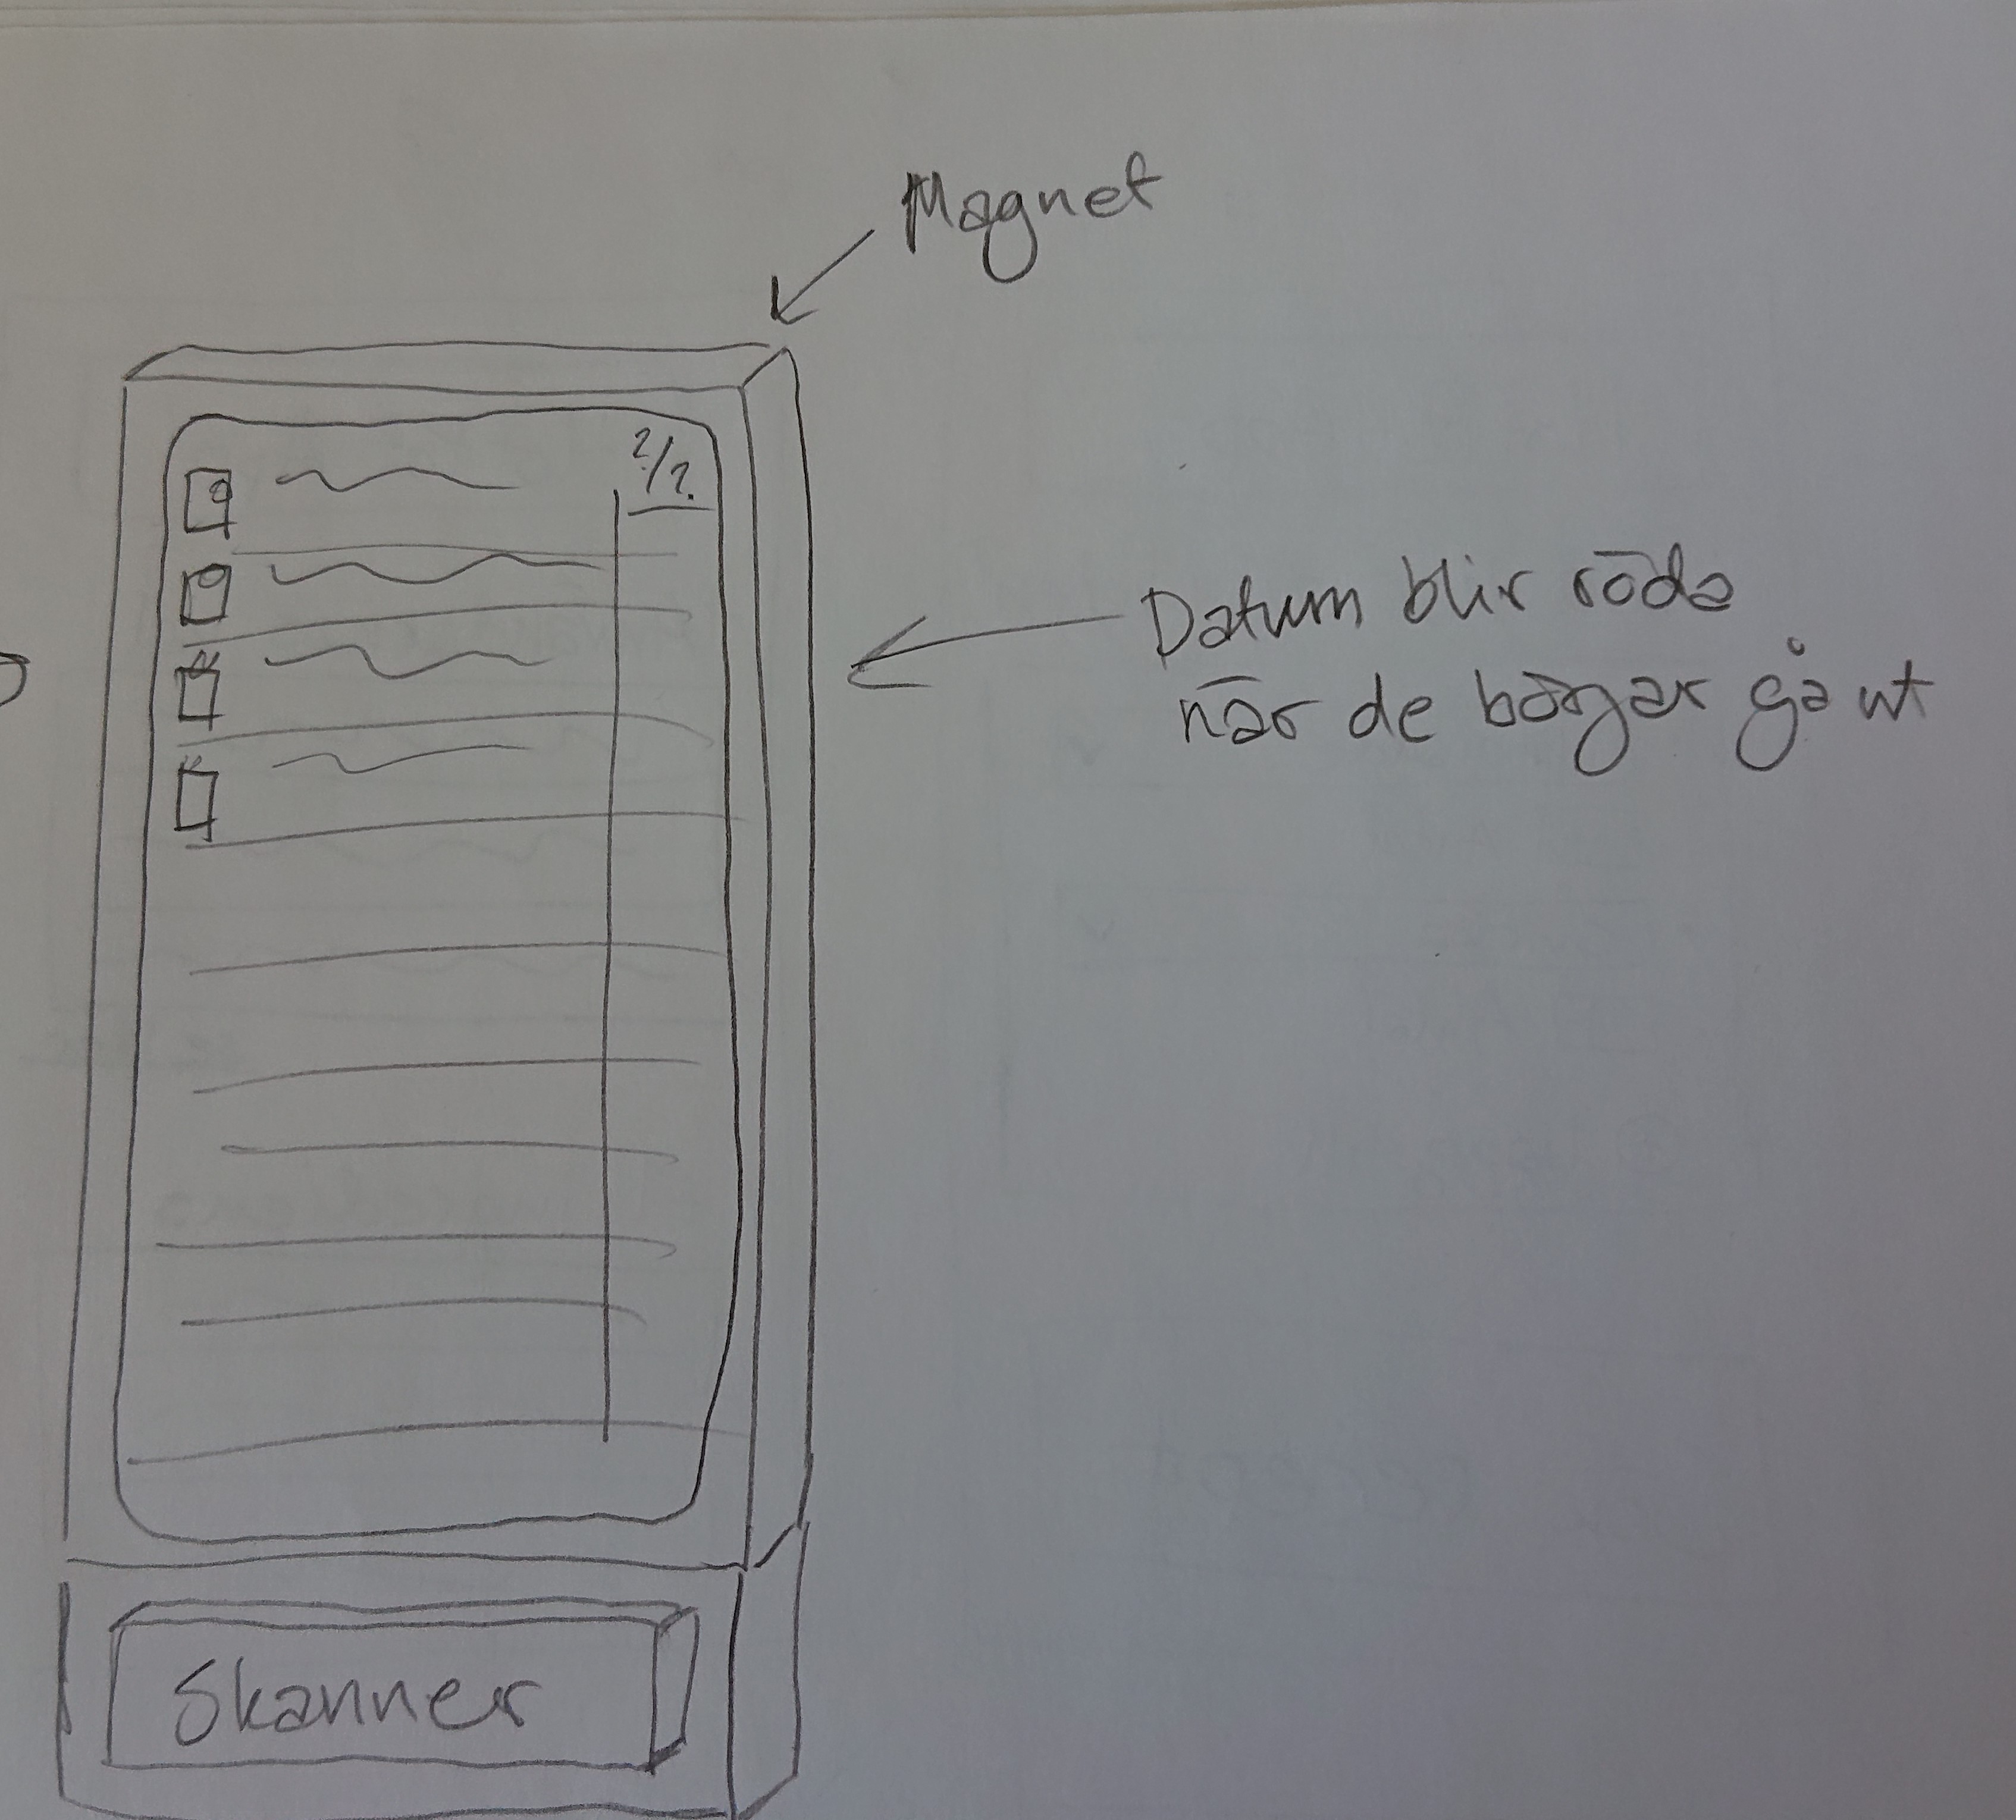 Magnet
?/?
Datum blir röda
när de börjar gå ut
Skanner